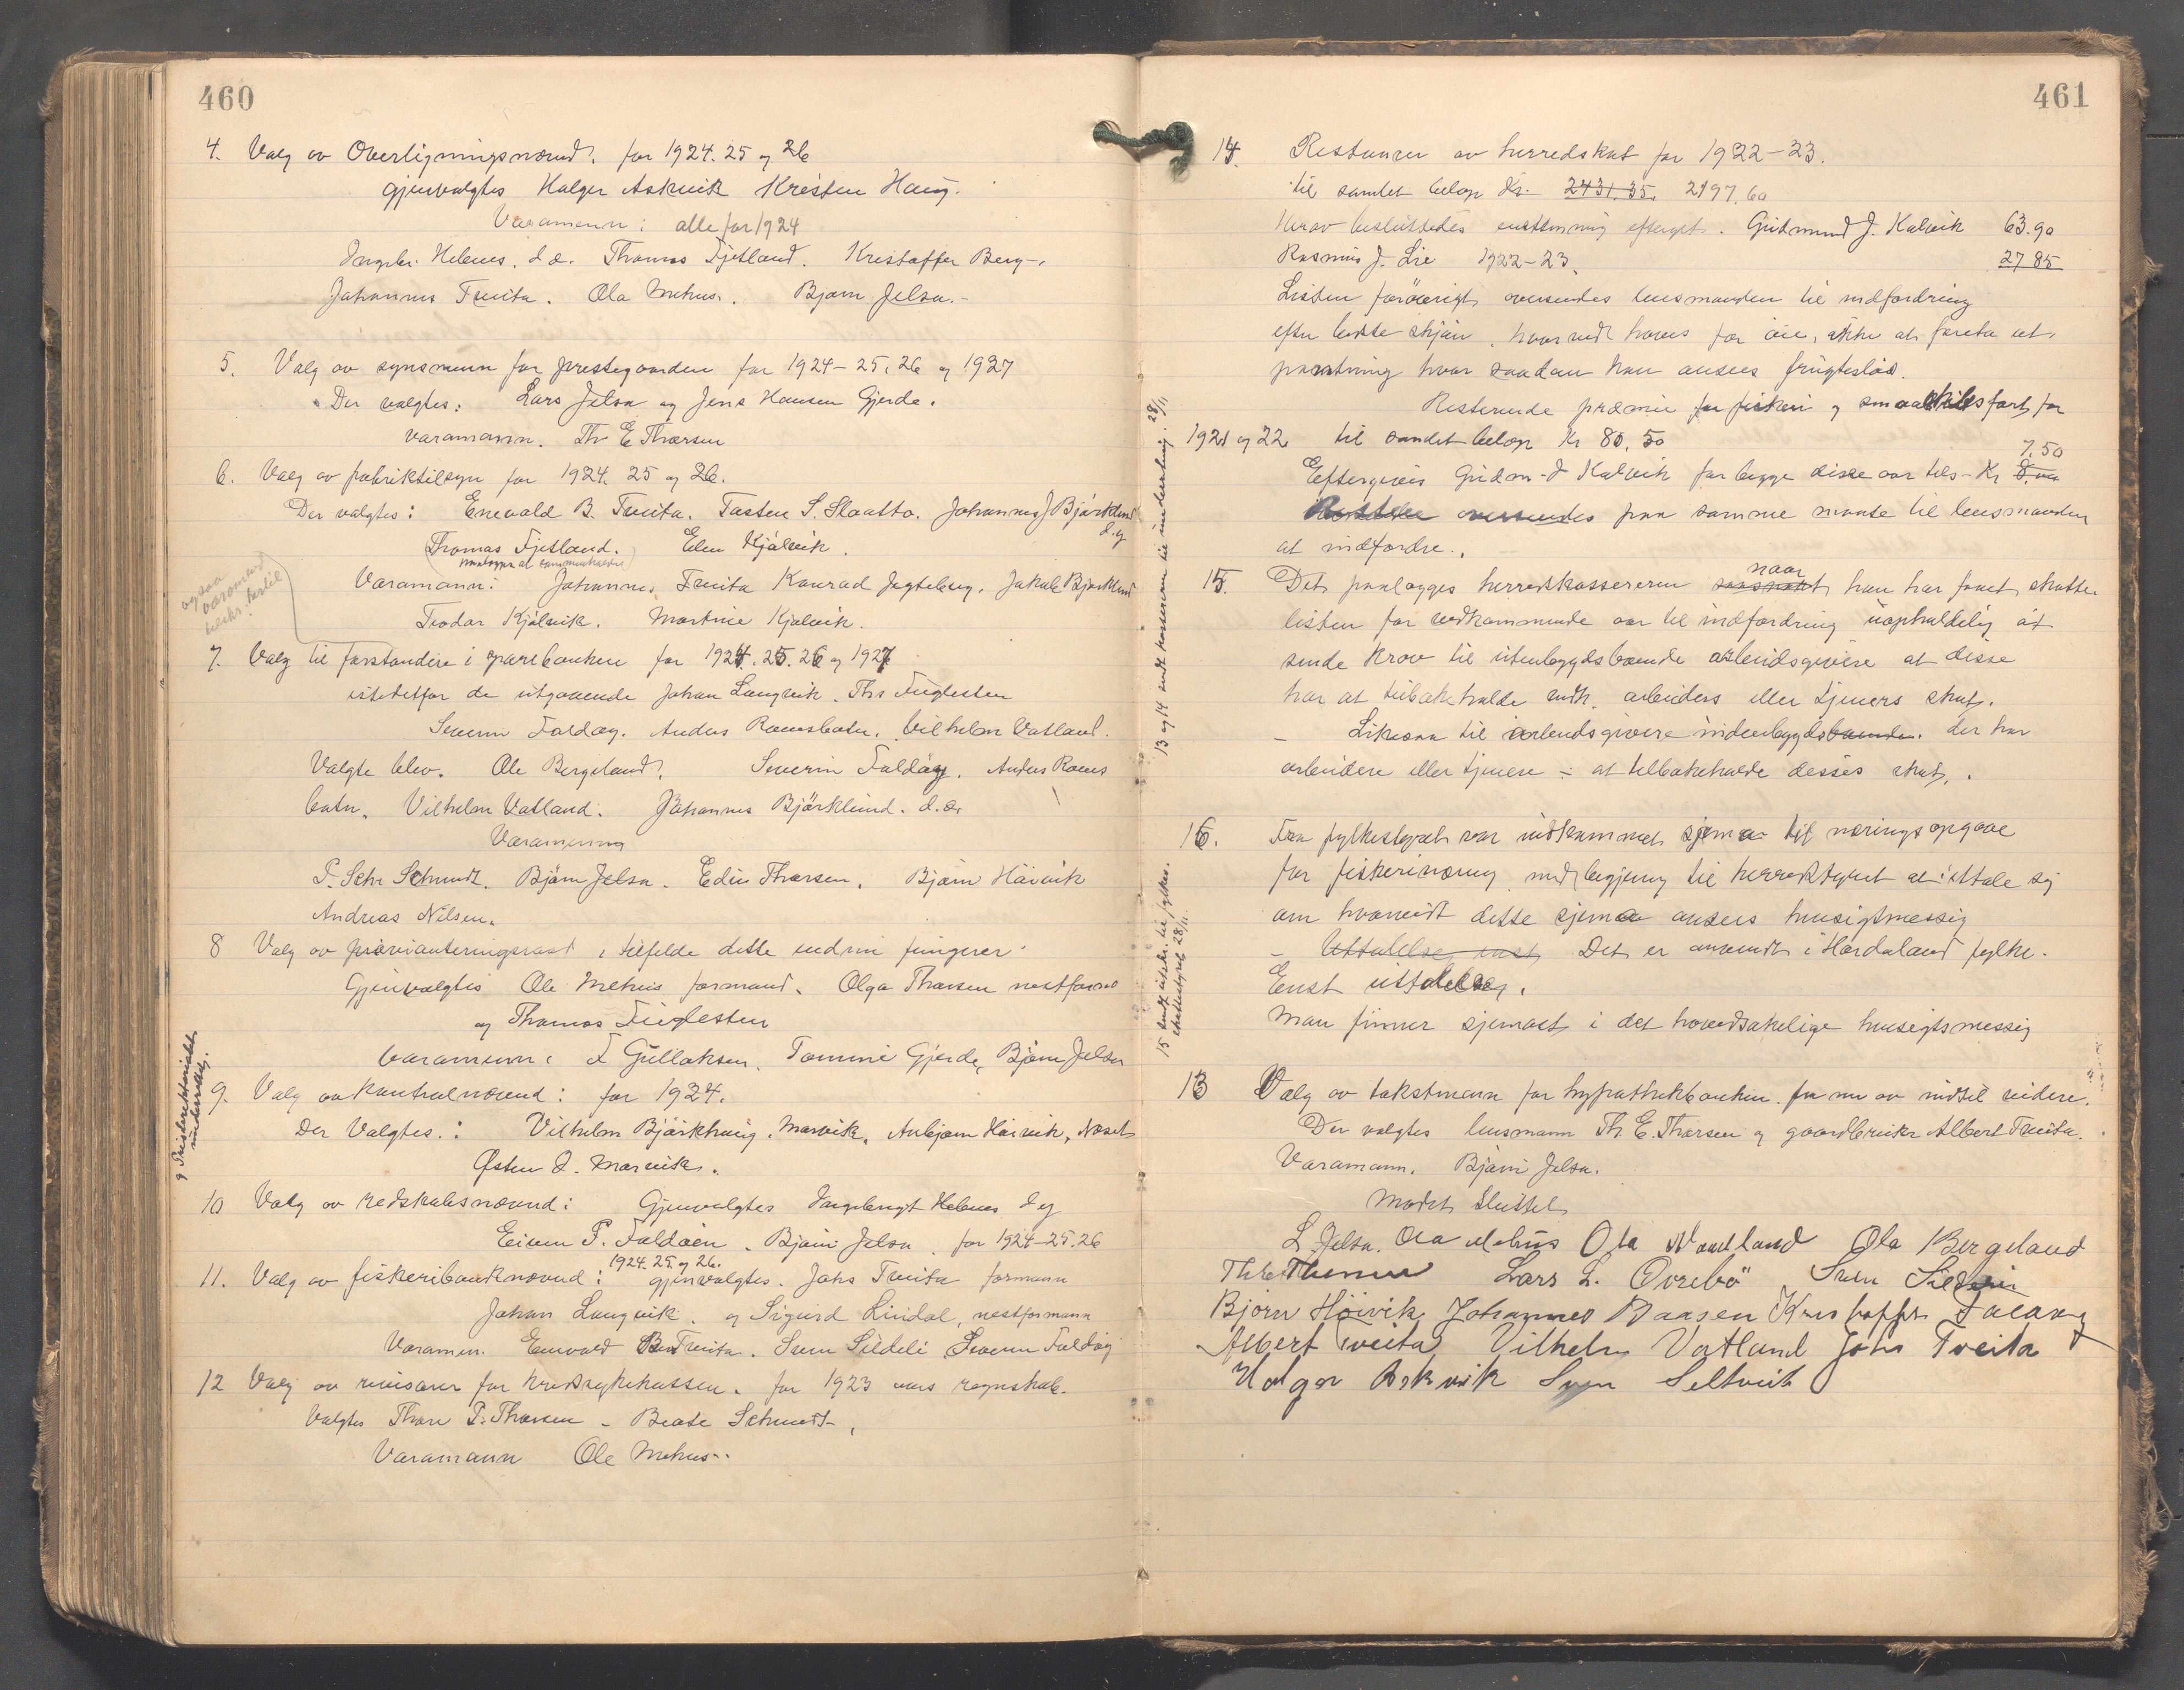 460
4. Valg av Overligningsnævnd. for 1924. 25 og 26
gjenvalgtes Holger Askvik Kristen Haug.
Varamenn: alle for 1924
Ingebr. Helenes. d.æ. Thomas Fjetland. Kristoffer Berg-.
Johannes Tveita. Ola Mehus. Bjørn Jelsa.-
5. Valg av synsmenn for prestegaarden for 1924-25, 26 og 1927
Der valgtes: Lars Jelsa og Jens Hansen Gjerde.
varamann. Th E Thorsen
6. Valg av fabriktilsyn for 1924. 25 og 26.
Der valgtes: Enevald B. Tveita. Tosten S. Slaatto. Johannes J Bjørklund d.y
Thomas Fjetland. Elen Kjølvik.
Varamann: Johannes Tveita Konrad Jegteberg, Jakob Bjørklund
Teodor Kjølvik. Martine Kjølvik.
ogsaa
varamænd
7. Valg til forstandere i sparebanken for 1924. 25. 26 og 1927
istedetfor de utgaaende Johan Langvik. Ths Fuglesten
Severin Foldøy. Anders Ramsbotn. Vilhelm Vatland.
Valgte blev. Ole Bergeland. Severin Foldøy. Anders Rams
botn. Vilhelm Vatland. Johannes Bjørklund. d.æ.
Varamenn
P. Schr Schmidt. Bjørn Jelsa. Edin Thorsen. Bjørn Høivik
Andreas Nilsen.
8 Valg av provianteringsraad i tilfelde dette endnu fungerer.
Gjenvalgtes Ole Mehus formand. Olga Thorsen nestformd
og Thomas Fuglesten
varamenn: T Gullaksen. Tomine Gjerde, Bjørn Jelsa
9. Valg av kontrolnævnd: for 1924.
Der Valgtes.: Vilhelm Bjørkhaug. Marvik. Anbjørn Høivik, Neset
Østen O. Marvik.
10 Valg av redskabsnævnd: Gjenvalgtes Ingebregt Helenes d y
Eivin P. Foldøen. Bjørn Jelsa. for 1924-25. 26
11. Valg av fiskeribanknævnd: 1924. 25 og 26. gjenvalgtes. Johs Tveita formann
Johan Langvik. og Sigurd Lindal, nestformann
Varamen. Enevald B. Tveita. Sven Sildeli Severin Foldøy
12 Valg av revisorer for kredssykekassen. for 1923 aars regnskab.
Valgtes Thore P. Thorsen - Beate Schmidt.
Varamann Ole Mehus.
461
14. Restancer av herredskat for 1922-23.
til samlet beløp Kr. 2431.35. 2197.60
Herav besluttedes enstemmig eftergit. Gudmund J. Kalvik 63.90
Rasmus J. Lie 1922-23. 27 85
Listen forøverigt oversendes lensmanden til indfordring
efter bedste skjøn. hvorved haves for øie, ikke at foreta ut-
pantning hvor saadan kan ansees frugtesløs.
Resterende præmie for fiskeri og smaaskibsfart for
1921 og 22 til samlet beløp Kr 80,50
Eftergives Gudm. J Kalvik for begge disse aar tils- Kr 7.50
Resten oversendes paa samme maate til lensmanden
at indfordre.
13 og 14 sendt kassereren til inddrivning. 28/11
15. Det paalægges herredskassereren naar han har faaet skatte-
listen for vedkommende aar til indfordring uopholdelig at
sende krav til utenbygdsboende arbeidsgivere at disse
har at tilbakeholde vedk. arbeiders eller tjeners skat.
- Likesaa til arbeidsgivere indenbygds boende. der har
arbeidere eller tjenere - at tilbakeholde desses skat.
16. Fra fylkesstyret var indkommet sjema til næringsopgave
for fiskerinæring med begjæring til herredstyret at uttale sig
om hvorvidt dette sjema ansees hensigtmessig
- Uttalelse enst. Det er anvendt i Hordaland fylke.
Enst uttalelse.
Man finner sjemaet i det hovedsakelige hensigtsmessig
13 Valg av takstmenn for hypothekbanken. fra nu av indtil videre.
Der valgtes lensmann Th. E. Thorsen og gaardbruker Albert Tveita.
Varamann. Bjørn Jelsa.
Mødet Sluttet
L Jelsa. Ola Mehus Ola Vandland Ola Bergeland
Th E Thorsen Lars L. Ovrebö Sven Sildeli
Bjørn Höivik Johannes Baasen Kristoffer Foldøy
Albert Tveita Vilhelm Vatland Johs Tveita
Holger Askvik Sven Seltveit